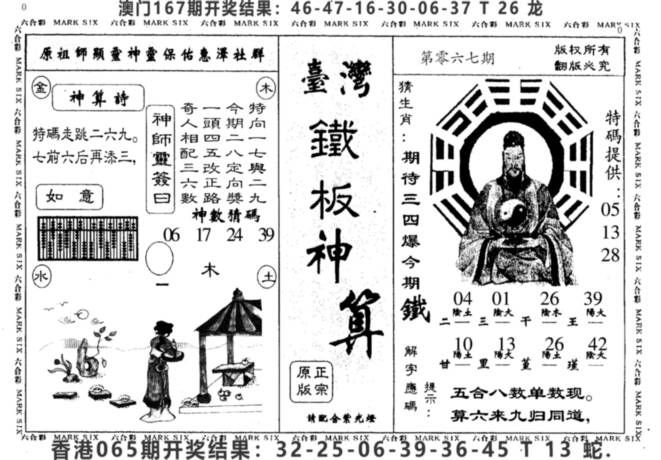 澳门167期开奖结果：46-47-16-30-06-37 T 26 龙
六合彩 MARK SIX 六合彩 MARK SIX 六合彩 MARK SIX 六合彩 MARK SIX
原祖師顯靈神靈保佑惠澤社群
金
神算詩
特碼走踫二六九。
七前六后再添三，
如意
神師靈簽曰
木
特向一七與二九
今期二八定向獎
一頭四五改正路
奇人相配三六數
神數猜碼
06 17 24 39
水
木
土
臺灣
鐵板神算
正宗
原版
請配合紫光燈
第零六七期
版权所有
翻版必究
猜生肖：期待三四爆今期鐵
特碼提供：05 13 28
04 01 26 39
陰土 陰火 陰木 陽火
二 三 干 王
10 13 26 42
陽土 陽火 陰土 陰火
甘 里 堇 瑾
解字應碼
提示：
五合八数单数现。
算六来九归同道，
六合彩 MARK SIX 六合彩 MARK SIX 六合彩 MARK SIX 六合彩 MARK SIX
香港065期开奖结果：32-25-06-39-36-45 T 13 蛇.